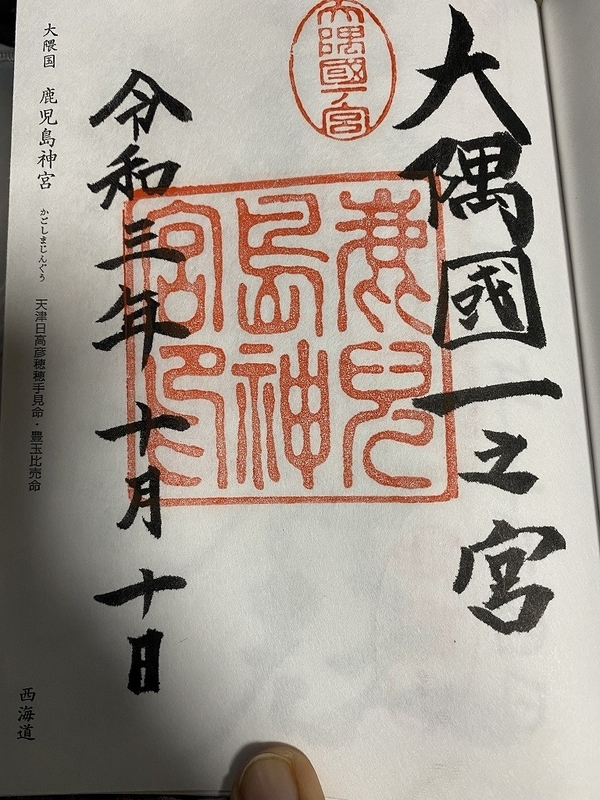 大隅國一之宮
大隅國一宮
鹿児
島神
宮印
令和三年十月十日
大隅国 鹿児島神宮 かごしまじんぐう 天津日高彦穂穂手見命・豊玉比売命
西海道